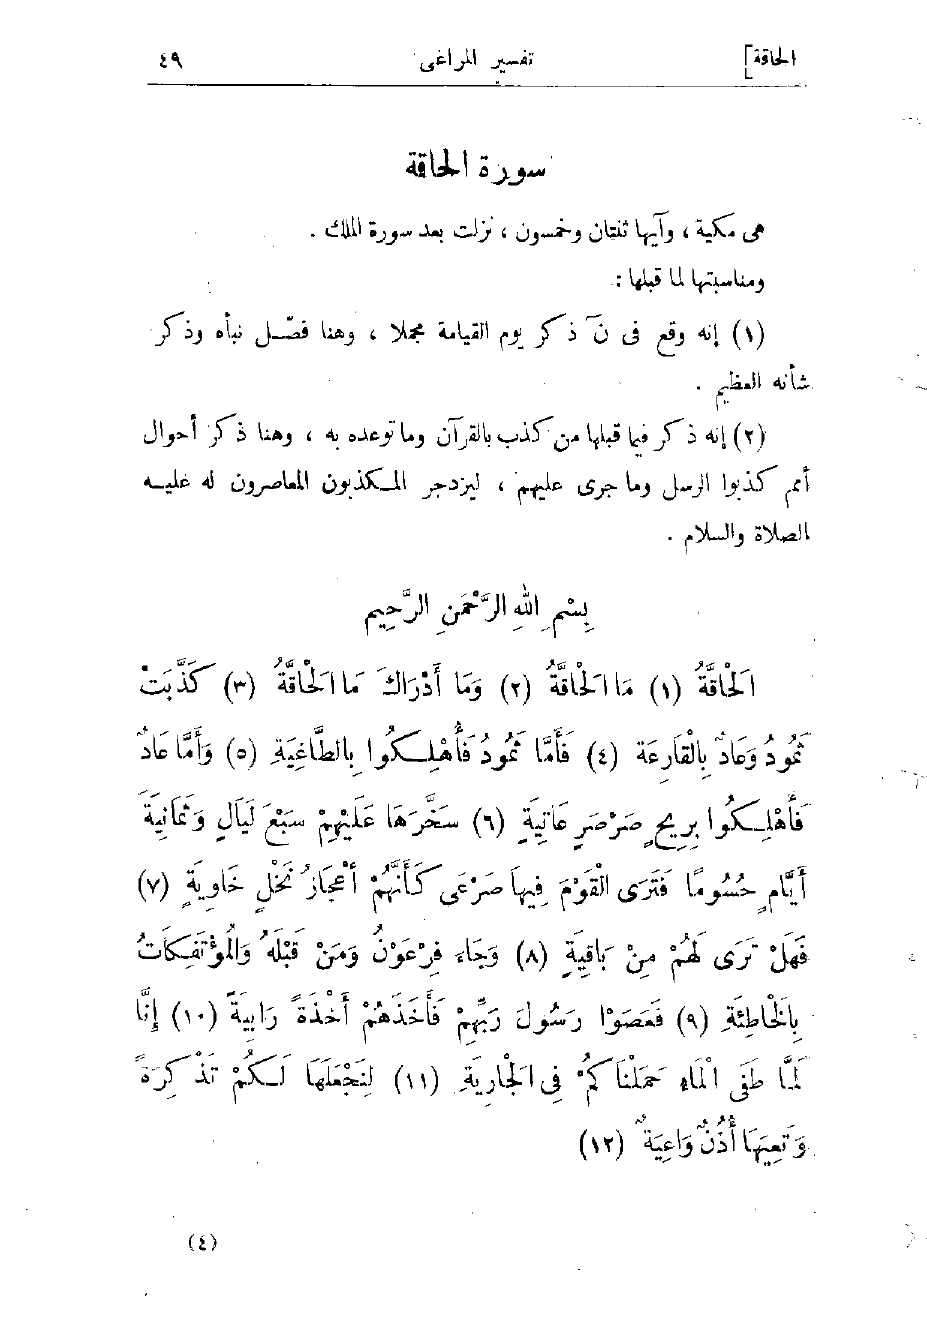 الحاقة] تفسير المراغى ٤٩
سورة الحاقة
هى مكية ، وآيها ثنتان وخمسون ، نزلت بعد سورة الملك .
ومناسبتها لما قبلها :
(١) إنه وقع فى نٓ ذكر يوم القيامة مجملا ، وهنا فصّل نبأه وذكر
شأنه العظيم .
(٢) إنه ذكر فيما قبلها من كذب بالقرآن وما توعده به ، وهنا ذكر أحوال
أمم كذبوا الرسل وما جرى عليهم ، ليزدجر المكذبون المعاصرون له عليه
الصلاة والسلام .
بِسْمِ اللهِ الرَّحْمَنِ الرَّحِيمِ
اَلْحَاقَّةُ (١) مَا الْحَاقَّةُ (٢) وَمَا أَدْرَاكَ مَا الْحَاقَّةُ (٣) كَذَّبَتْ
ثَمُودُ وَعَادٌ بِالْقَارِعَةِ (٤) فَأَمَّا ثَمُودُ فَأُهْلِكُوا بِالطَّاغِيَةِ (٥) وَأَمَّا عَادٌ
فَأُهْلِكُوا بِرِيحٍ صَرْصَرٍ عَاتِيَةٍ (٦) سَخَّرَهَا عَلَيْهِمْ سَبْعَ لَيَالٍ وَثَمَانِيَةَ
أَيَّامٍ حُسُومًا فَتَرَى الْقَوْمَ فِيهَا صَرْعَى كَأَنَّهُمْ أَعْجَازُ نَخْلٍ خَاوِيَةٍ (٧)
فَهَلْ تَرَى لَهُمْ مِنْ بَاقِيَةٍ (٨) وَجَاءَ فِرْعَوْنُ وَمَنْ قَبْلَهُ وَالْمُؤْتَفِكَاتُ
بِالْخَاطِئَةِ (٩) فَعَصَوْا رَسُولَ رَبِّهِمْ فَأَخَذَهُمْ أَخْذَةً رَابِيَةً (١٠) إِنَّا
لَمَّا طَغَى الْمَاءُ حَمَلْنَاكُمْ فِى الْجَارِيَةِ (١١) لِنَجْعَلَهَا لَكُمْ تَذْكِرَةً
وَتَعِيَهَا أُذُنٌ وَاعِيَةٌ (١٢)
(٤)